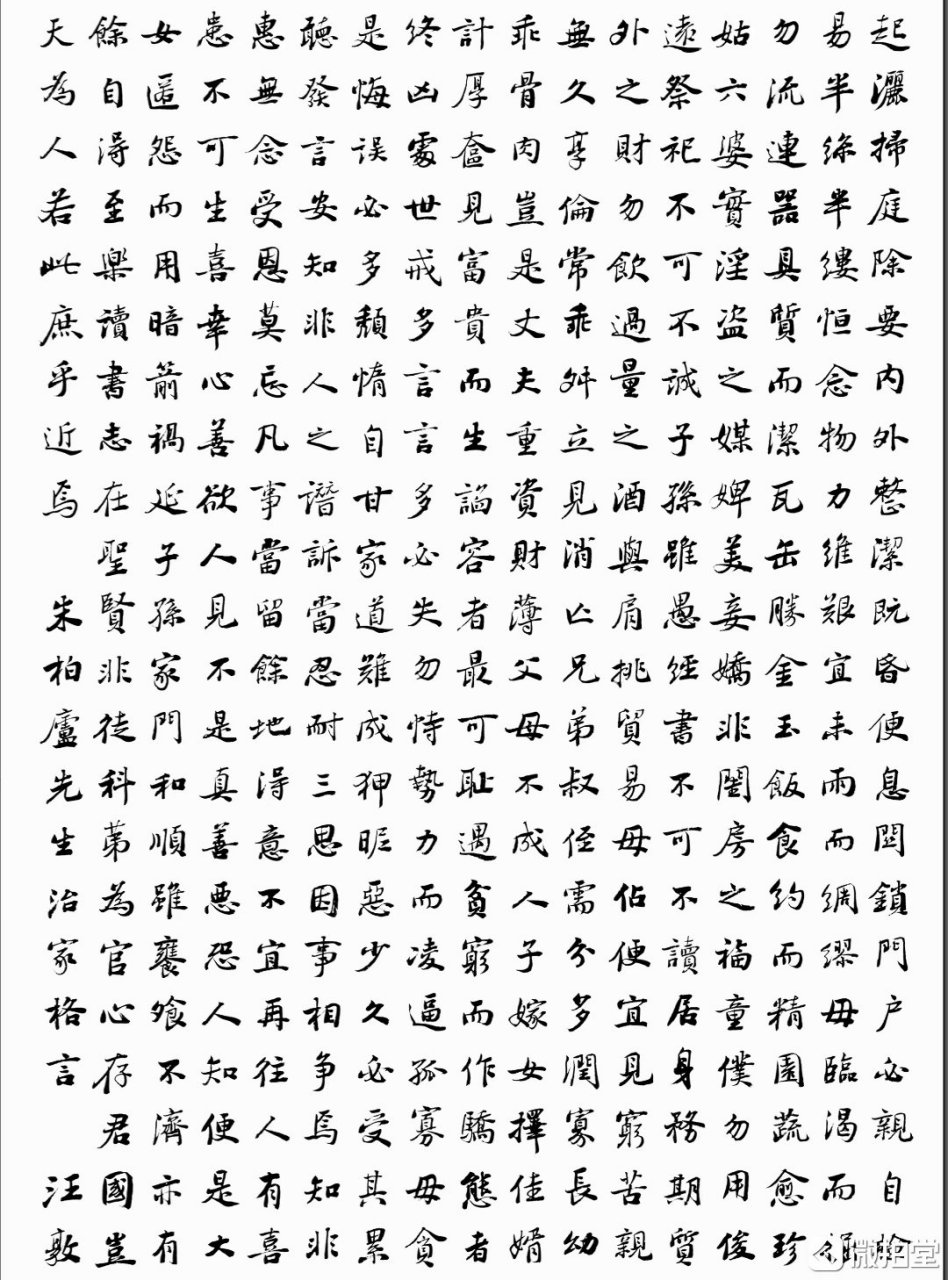 起灑掃庭除要内外整潔既昏便息関鎖門户必親自
易半絲半縷恒念物力維艱宜未雨而綢繆毋臨渴而
勿流連器具質而潔瓦缶勝金玉飯食約而精園蔬愈珍
姑六婆實淫盗之媒婢美妾嬌非閨房之福童僕勿用俊
遠祭祀不可不誠子孫雖愚經書不可不讀居身務期質
外之財勿飲過量之酒與肩挑貿易毋佔便宜見窮苦親
無久享倫常乖舛立見消亡兄弟叔侄需分多潤寡長幼
乖骨肉豈是丈夫重資財薄父母不成人子嫁女擇佳婿
計厚奩見富貴而生諂容者最可耻遇貧窮而作驕態者
終凶處世戒多言言多必失勿恃勢力而凌逼孤寡毋貪
是悔誤必多頹惰自甘家道難成狎昵惡少久必受其累
聽發言安知非人之譖訴當忍耐三思因事相争焉知非
惠無念受恩莫忘凡事當留餘地得意不宜再往人有喜
患不可生喜幸心善欲人見不是真善惡恐人知便是大
女匿怨而用暗箭禍延子孫家門和順雖饔飧不濟亦有
餘自得至樂讀書志在聖賢非徒科第為官心存君國豈
天為人若此庶乎近焉 朱柏廬先生治家格言 汪敦
微拍堂